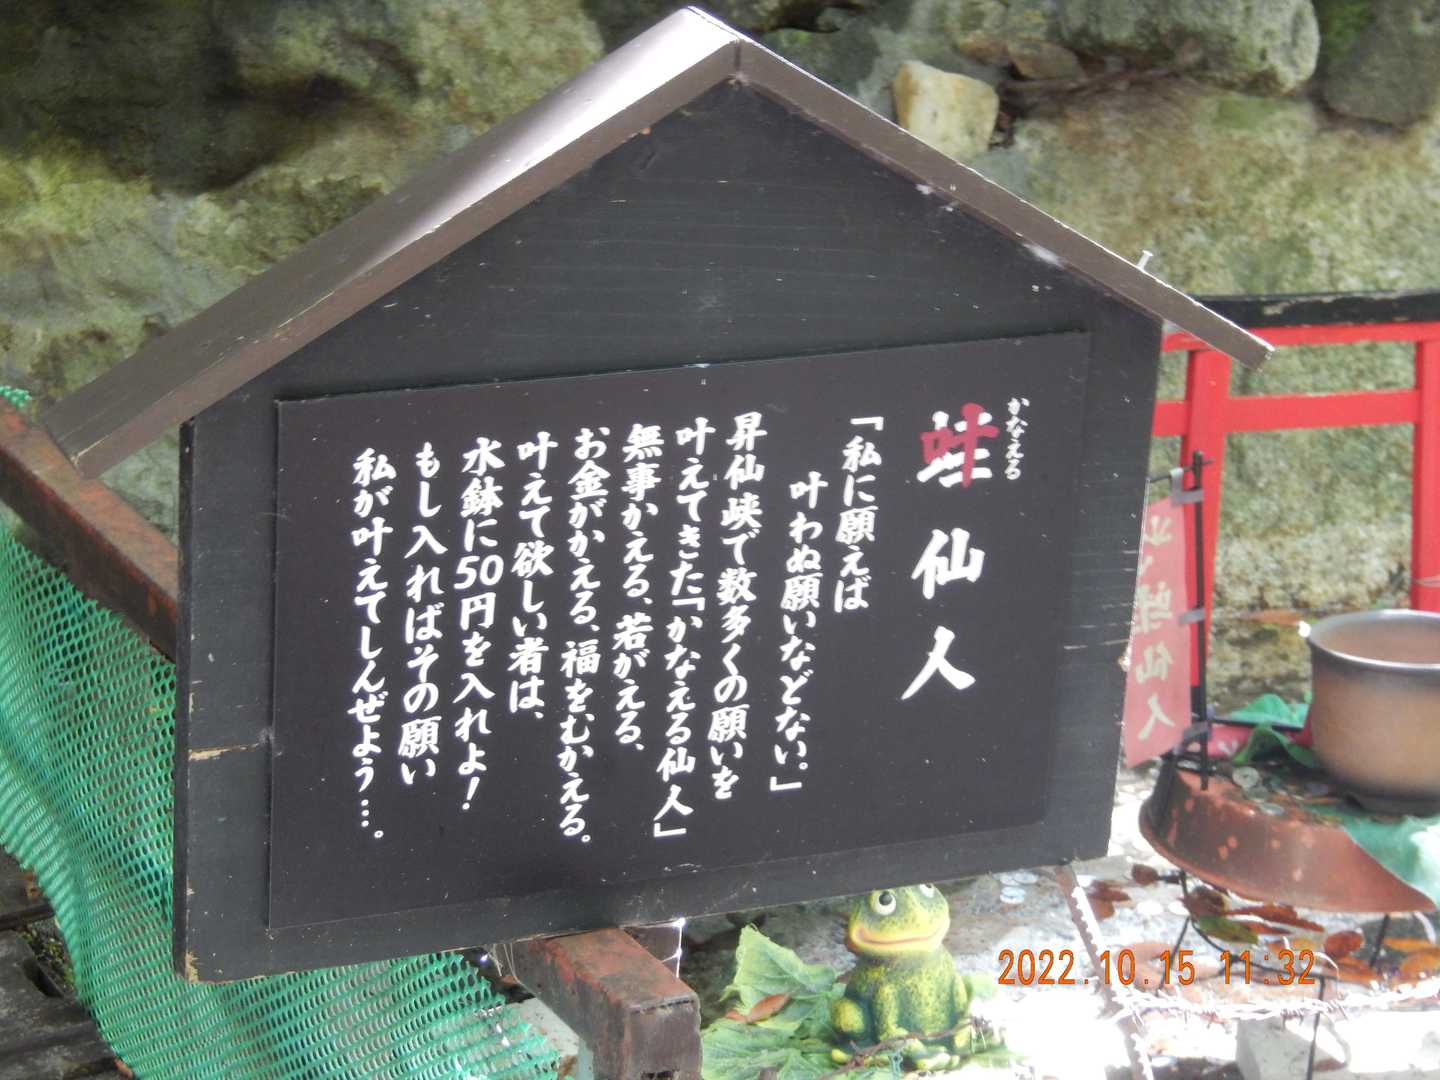 かなえる
叶仙人
「私に願えば
叶わぬ願いなどない。」
昇仙峡で数多くの願いを
叶えてきた「かなえる仙人」
無事かえる、若がえる、
お金がかえる、福をむかえる。
叶えて欲しい者は、
水鉢に50円を入れよ!
もし入れればその願い
私が叶えてしんぜよう…。
仙人
2022.10.15 11:32